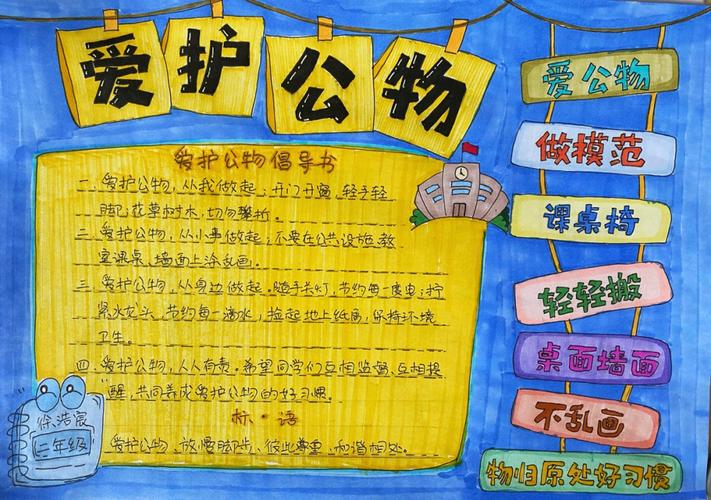 爱护公物
爱护公物倡导书
一、爱护公物，从我做起；开门开窗，轻手轻
脚；花草树木，切勿攀折。
二、爱护公物，从小事做起；不要在公共设施、教
室课桌、墙面上涂乱画。
三、爱护公物，从身边做起。随手关灯，节约每一度电；拧
紧水龙头，节约每一滴水，捡起地上纸屑，保持环境
卫生。
四、爱护公物，人人有责。希望同学们互相监督、互相提
醒，共同养成爱护公物的好习惯。
标·语
爱护公物、放慢脚步、彼此尊重、和谐相处。
爱公物
做模范
课桌椅
轻轻搬
桌面墙面
不乱画
物归原处好习惯
徐浩宸
三年级